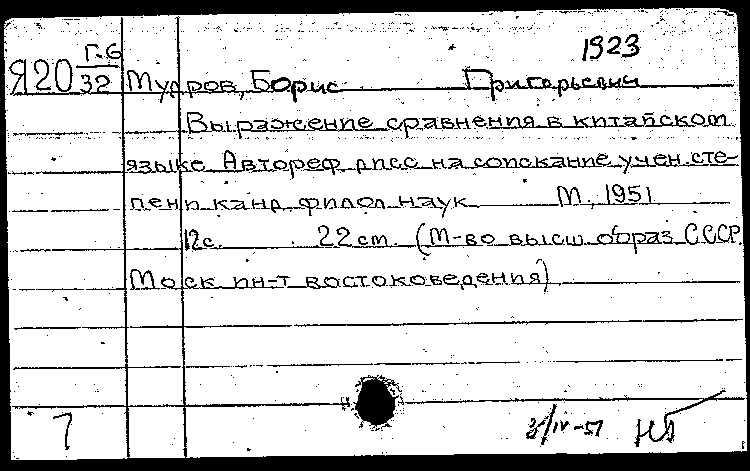 1923
Г-6
Я20 32 Мудров, Борис Григорьевич
Выражение сравнения в китайском
языке. Автореф дисс на соискание учен. сте-
пени канд филол наук М, 1951
12с. 22 cm. (М-во высш образ СССР
Моск ин-т востоковедения)
7 3/IV-51